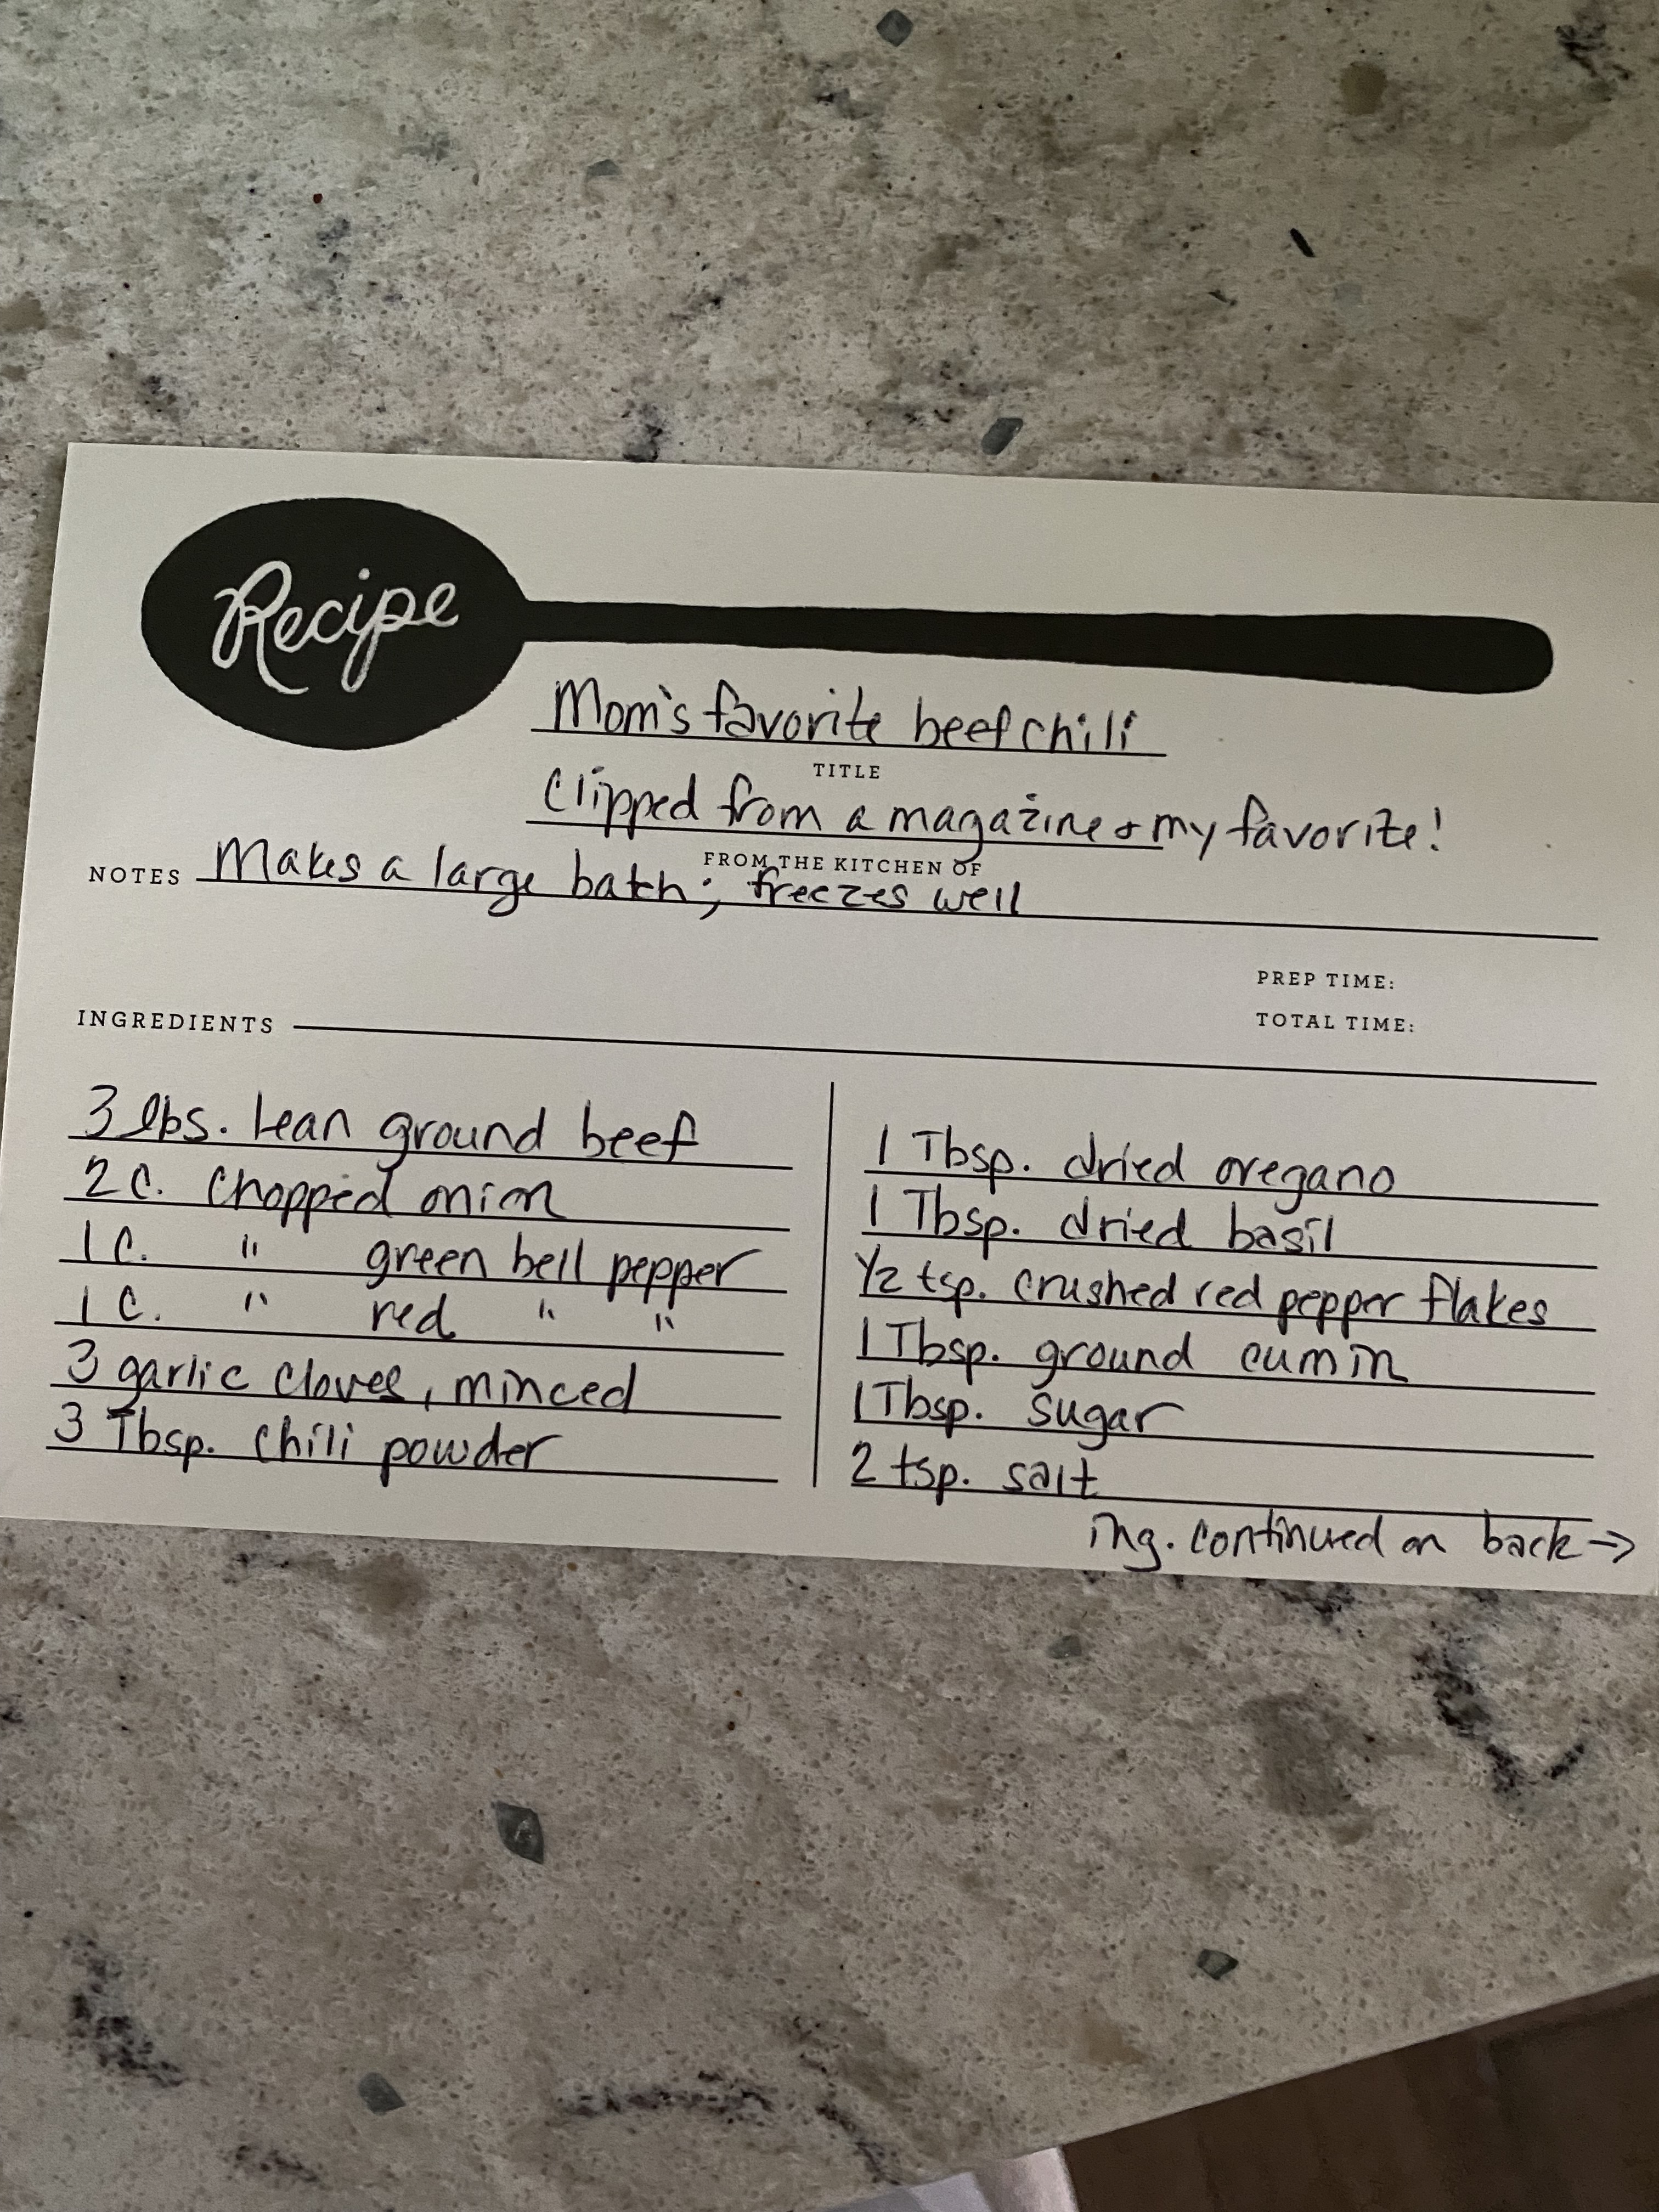 Recipe
Mom's favorite beef chili
TITLE
Clipped from a magazine & my favorite!
FROM THE KITCHEN OF
NOTES Makes a large batch; freezes well
PREP TIME:
TOTAL TIME:
INGREDIENTS
3 lbs. Lean ground beef
2 C. Chopped onion
1 C. " green bell pepper
1 C. " red " "
3 garlic cloves, minced
3 Tbsp. chili powder
1 Tbsp. dried oregano
1 Tbsp. dried basil
1/2 tsp. crushed red pepper flakes
1 Tbsp. ground cumin
1 Tbsp. sugar
2 tsp. salt
ing. continued on back →